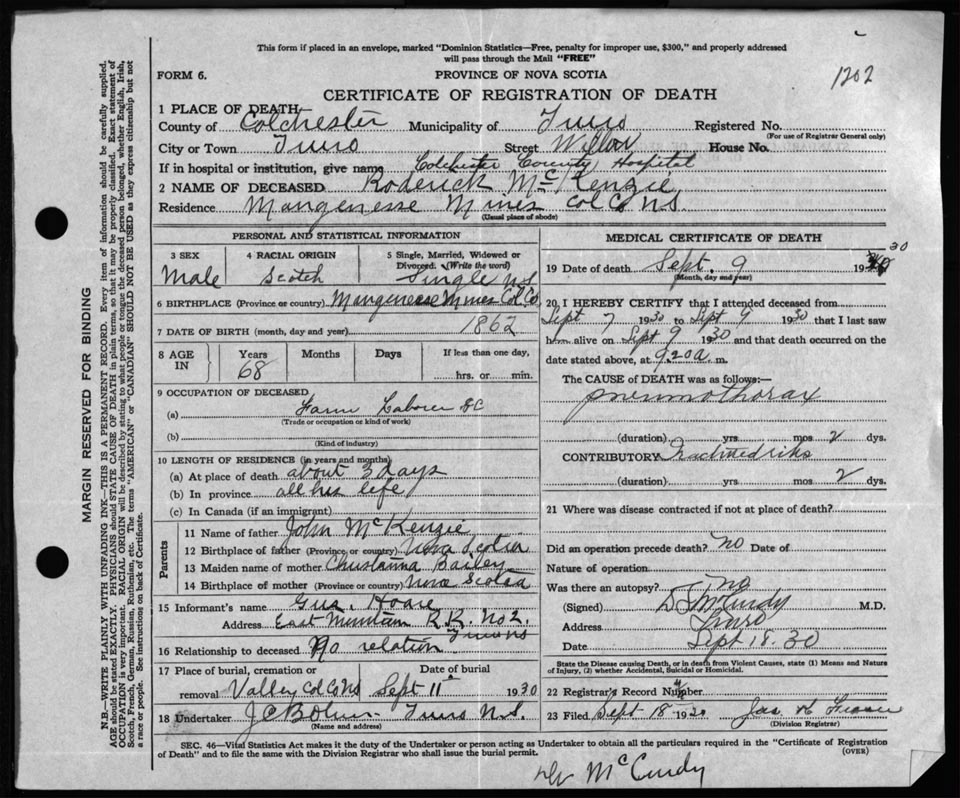 This form if placed in an envelope, marked "Dominion Statistics—Free, penalty for improper use, $300," and properly addressed
will pass through the Mail "FREE"
1202
FORM 6.
PROVINCE OF NOVA SCOTIA
CERTIFICATE OF REGISTRATION OF DEATH
1 PLACE OF DEATH
County of Colchester Municipality of Truro Registered No.
(For use of Registrar General only)
City or Town Truro Street Willow House No.
If in hospital or institution, give name Colchester County Hospital
2 NAME OF DECEASED Roderick McKenzie
Residence Mangenesse Mines Col Co NS.
(Usual place of abode)
PERSONAL AND STATISTICAL INFORMATION
3 SEX Male
4 RACIAL ORIGIN Scotch
5 Single, Married, Widowed or Divorced. (Write the word) Single
6 BIRTHPLACE (Province or country) Mangenesse Mines Col. Co. N.S.
7 DATE OF BIRTH (month, day and year) 1862
8 AGE IN Years 68 Months Days If less than one day, hrs. or min.
9 OCCUPATION OF DECEASED
(a) Farm Laborer &C
(Trade or occupation or kind of work)
(b)
(Kind of industry)
10 LENGTH OF RESIDENCE (in years and months)
(a) At place of death about 3 days
(b) In province all his life
(c) In Canada (if an immigrant)
Parents
11 Name of father John McKenzie
12 Birthplace of father (Province or country) Nova Scotia
13 Maiden name of mother Christanna Bailey
14 Birthplace of mother (Province or country) Nova Scotia
15 Informant's name Gus. Hoare
Address East Mountain R.R. No 2. Truro NS
16 Relationship to deceased No relation
17 Place of burial, cremation or removal Valley Col Co NS Date of burial Sept 11 1930
18 Undertaker J C B Truro N.S.
(Name and address)
MEDICAL CERTIFICATE OF DEATH
19 Date of death Sept. 9 1930
(Month, day and year)
20 I HEREBY CERTIFY that I attended deceased from
Sept 7 1930 to Sept 9 1930 that I last saw
him alive on Sept 9 1930 and that death occurred on the
date stated above, at 9.20 a m.
The CAUSE OF DEATH was as follows:—
pneumothorax
(duration) yrs. mos 2 dys.
CONTRIBUTORY
(duration) yrs. mos 2 dys.
21 Where was disease contracted if not at place of death?
Did an operation precede death? No Date of
Nature of operation
Was there an autopsy? no
(Signed) McCurdy M.D.
Address Truro
Date Sept 18. 30
State the Disease causing Death, or in death from Violent Causes, state (1) Means and Nature
of Injury, (2) whether Accidental, Suicidal or Homicidal.
22 Registrar's Record Number
23 Filed Sept 18 1930 Jas H
(Division Registrar)
SEC. 46—Vital Statistics Act makes it the duty of the Undertaker or person acting as Undertaker to obtain all the particulars required in the "Certificate of Registration
of Death" and to file the same with the Division Registrar who shall issue the burial permit.
(OVER)
Dr McCurdy
MARGIN RESERVED FOR BINDING
N.B.—WRITE PLAINLY WITH UNFADING INK—THIS IS A PERMANENT RECORD. Every item of information should be carefully supplied.
AGE should be stated EXACTLY. PHYSICIANS should STATE CAUSE OF DEATH in plain terms, so that it may be properly classified. Exact statement of
OCCUPATION is very important. RACIAL ORIGIN will be described by stating to what people or tongue the deceased person belonged, whether English, Irish,
Scotch, French, German, Russian, Ruthenian, etc. The terms "AMERICAN" or "CANADIAN" SHOULD NOT BE USED as they express citizenship but not
a race or people. See instructions on back of Certificate.